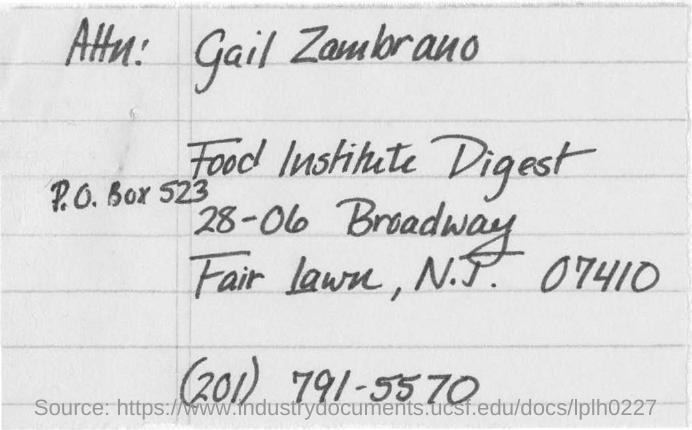 Attn: Gail Zambrano
Food Institute Digest
P.O. Box 523
28-06 Broadway
Fair Lawn, N.J. 07410
(201) 791-5570
Source: https://www.industrydocuments.ucsf.edu/docs/lplh0227